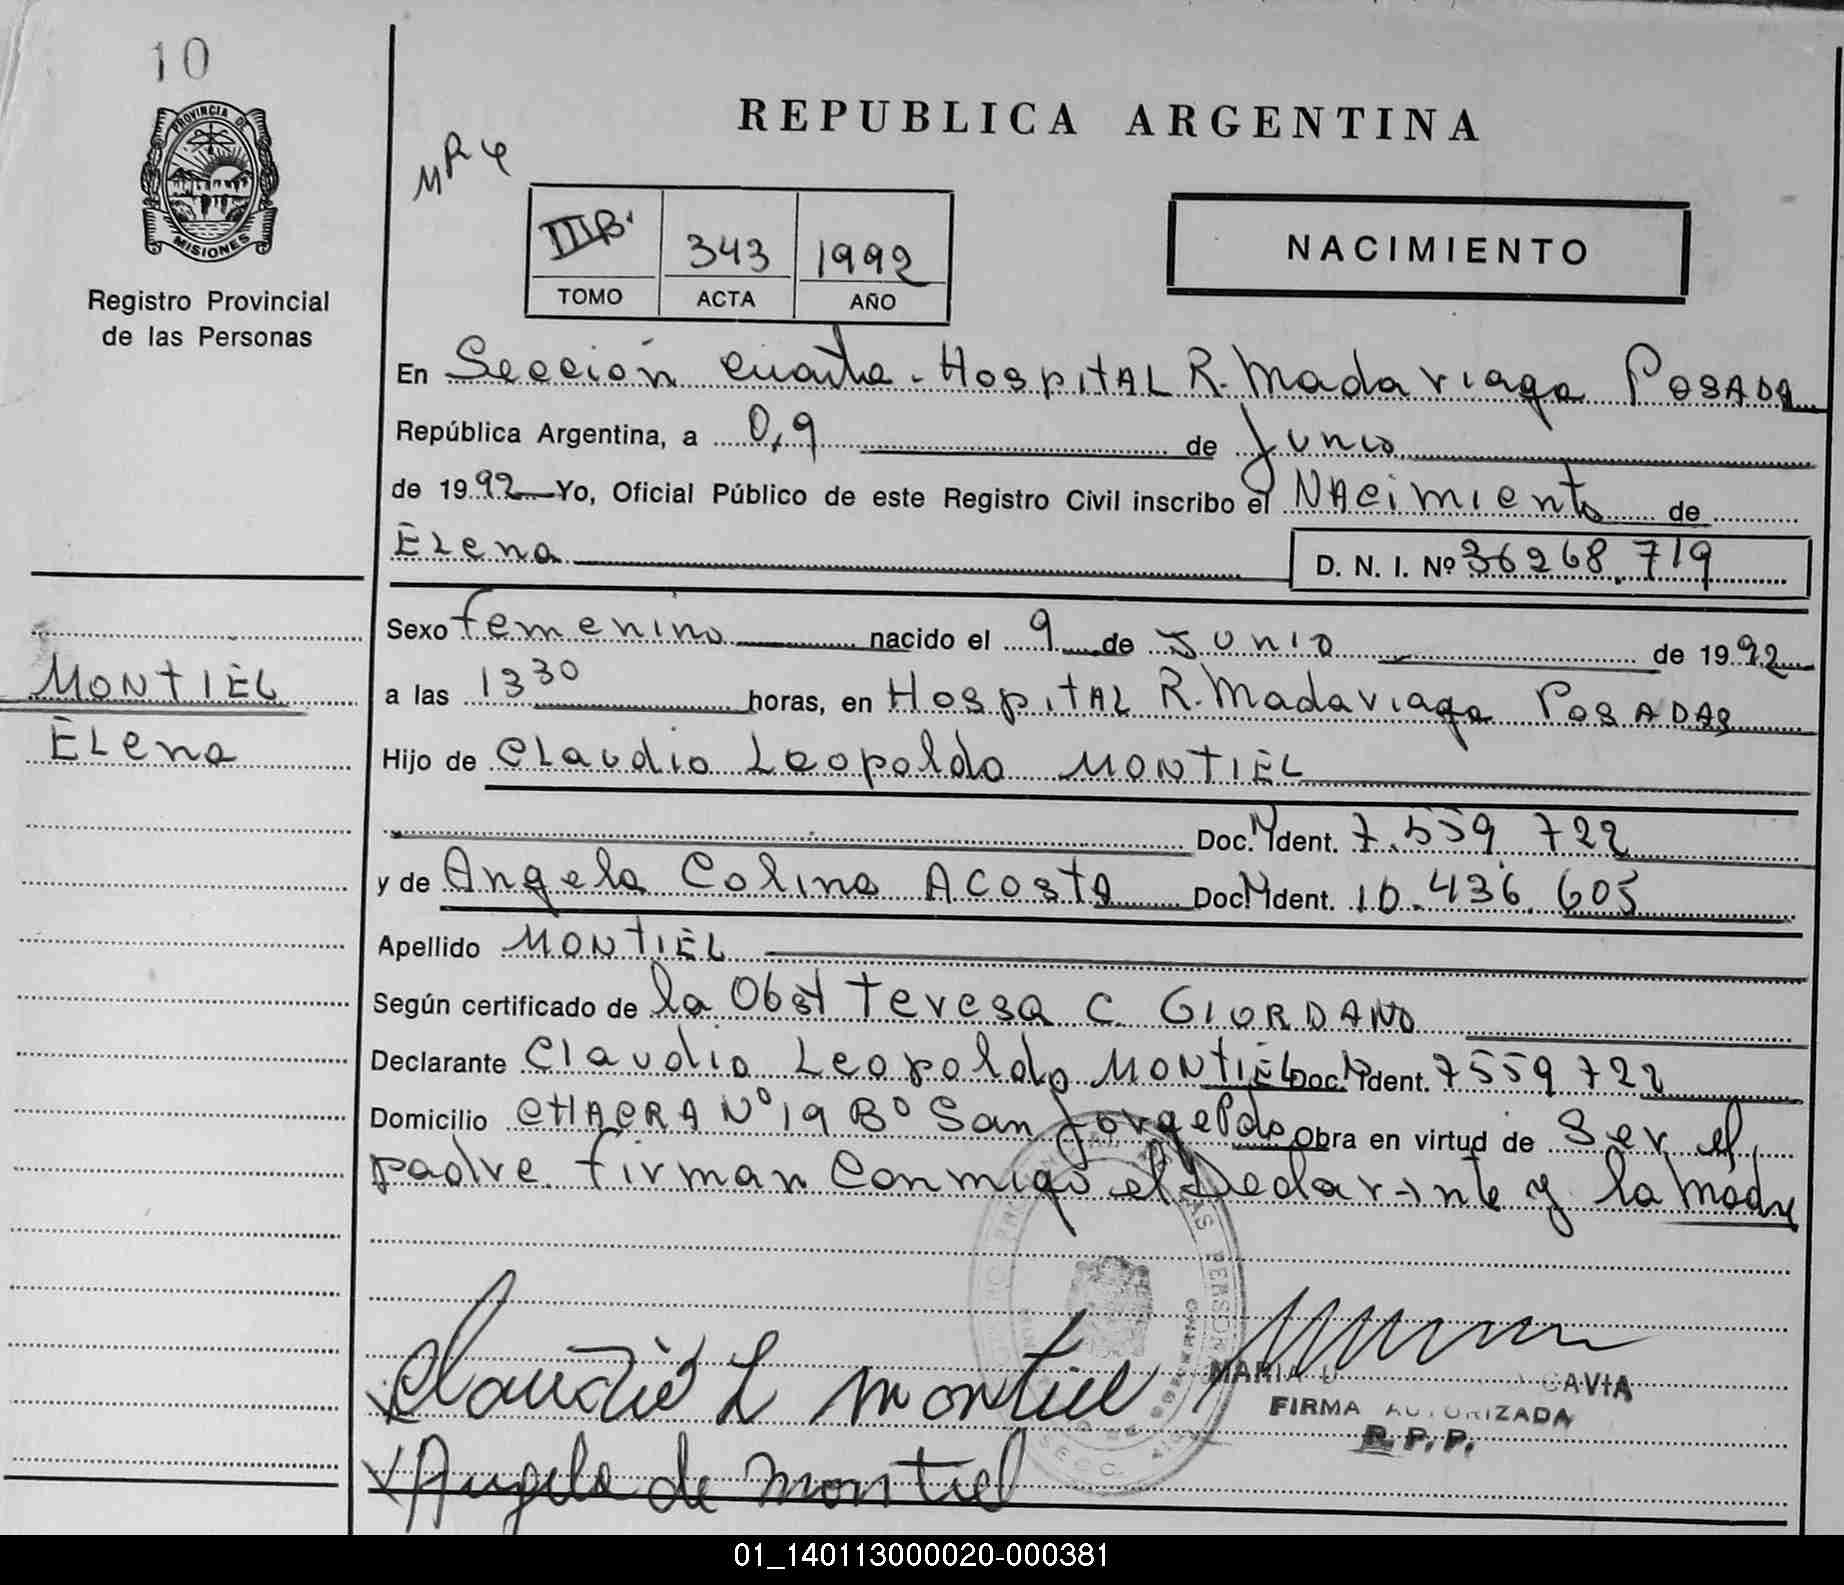 10
PROVINCIA DE
MISIONES
Registro Provincial
de las Personas
REPUBLICA ARGENTINA
MR4
IIIB. 343 1992
TOMO ACTA AÑO
NACIMIENTO
En Sección cuarta - Hospital R. Madariaga POSADA
República Argentina, a 0,9 de Junio
de 1992 Yo, Oficial Público de este Registro Civil inscribo el NACimiento de
Elena D. N. I. Nº 36268.719
Sexo femenino nacido el 9 de Junio de 1992
MONTIEL
a las 13 30 horas, en Hospital R. Madariaga POSADAS
Elena
Hijo de Claudio Leopoldo MONTIEL
Doc. M Ident. 7.559.722
y de Angela Colina Acosta Doc. M Ident. 10.436.605
Apellido MONTIEL
Según certificado de la Obst Teresa C. GIORDANO
Declarante Claudio Leopoldo MONTIEL Doc. M Ident. 7559722
Domicilio CHACRA Nº 19 Bº San Jorge Pdas Obra en virtud de Ser el
padre. firman Conmigo el Declarante y la madre
Claudio L Montiel
MARIA CAVIA
FIRMA AUTORIZADA
R. P. P.
Angela de Montiel
01_140113000020-000381